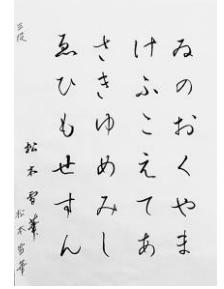 ゐのおくやま
けふこえてあ
さきゆめみし
ゑひもせすん
松本
松本